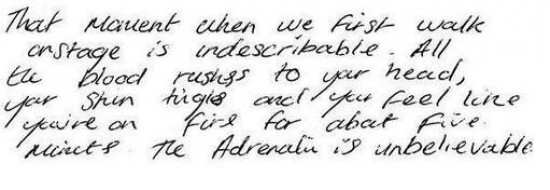 That Moment when we first walk
onstage is indescribable. All
the blood rushes to your head,
your skin tingles and your feel like
you're on fire for about five
minutes. The Adrenalin is unbelievable